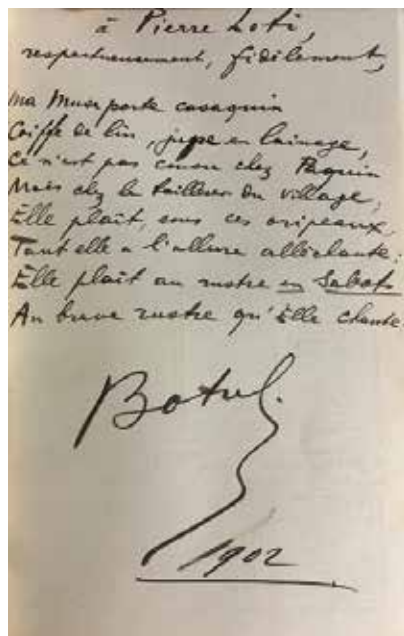 à Pierre Loti,
respectueusement, fidèlement,
Ma Muse porte casaquin
Coiffe de lin, jupe en lainage,
Ce n'est pas cousu chez Paquin
Mais chez le tailleur du village,
Elle plaît, sous ces oripeaux,
Tant elle a l'allure alléchante :
Elle plaît au rustre en Sabots
Au brave rustre qu'Elle chante.
Botrel.
1902